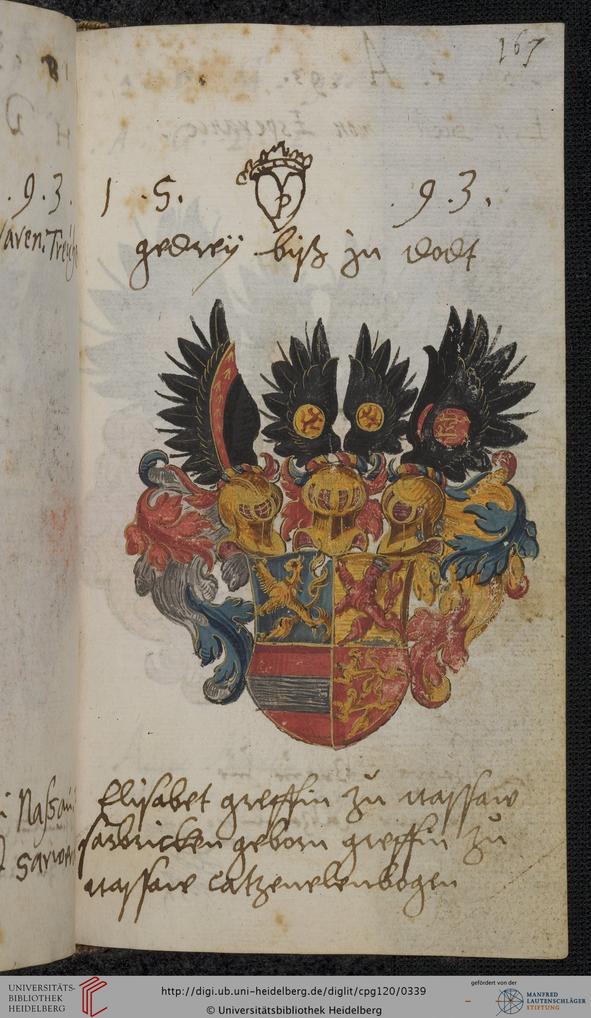 167
1 5. 9 3.
gedreÿ biß in dodt
Elisabet greffin zu nassaw
sarbricken geborn greffin zu
nassaw Catzenelenbogen
.9.3.
UNIVERSITÄTS-
BIBLIOTHEK
HEIDELBERG
http://digi.ub.uni-heidelberg.de/diglit/cpg120/0339
© Universitätsbibliothek Heidelberg
gefördert von der
MANFRED
LAUTENSCHLÄGER
STIFTUNG